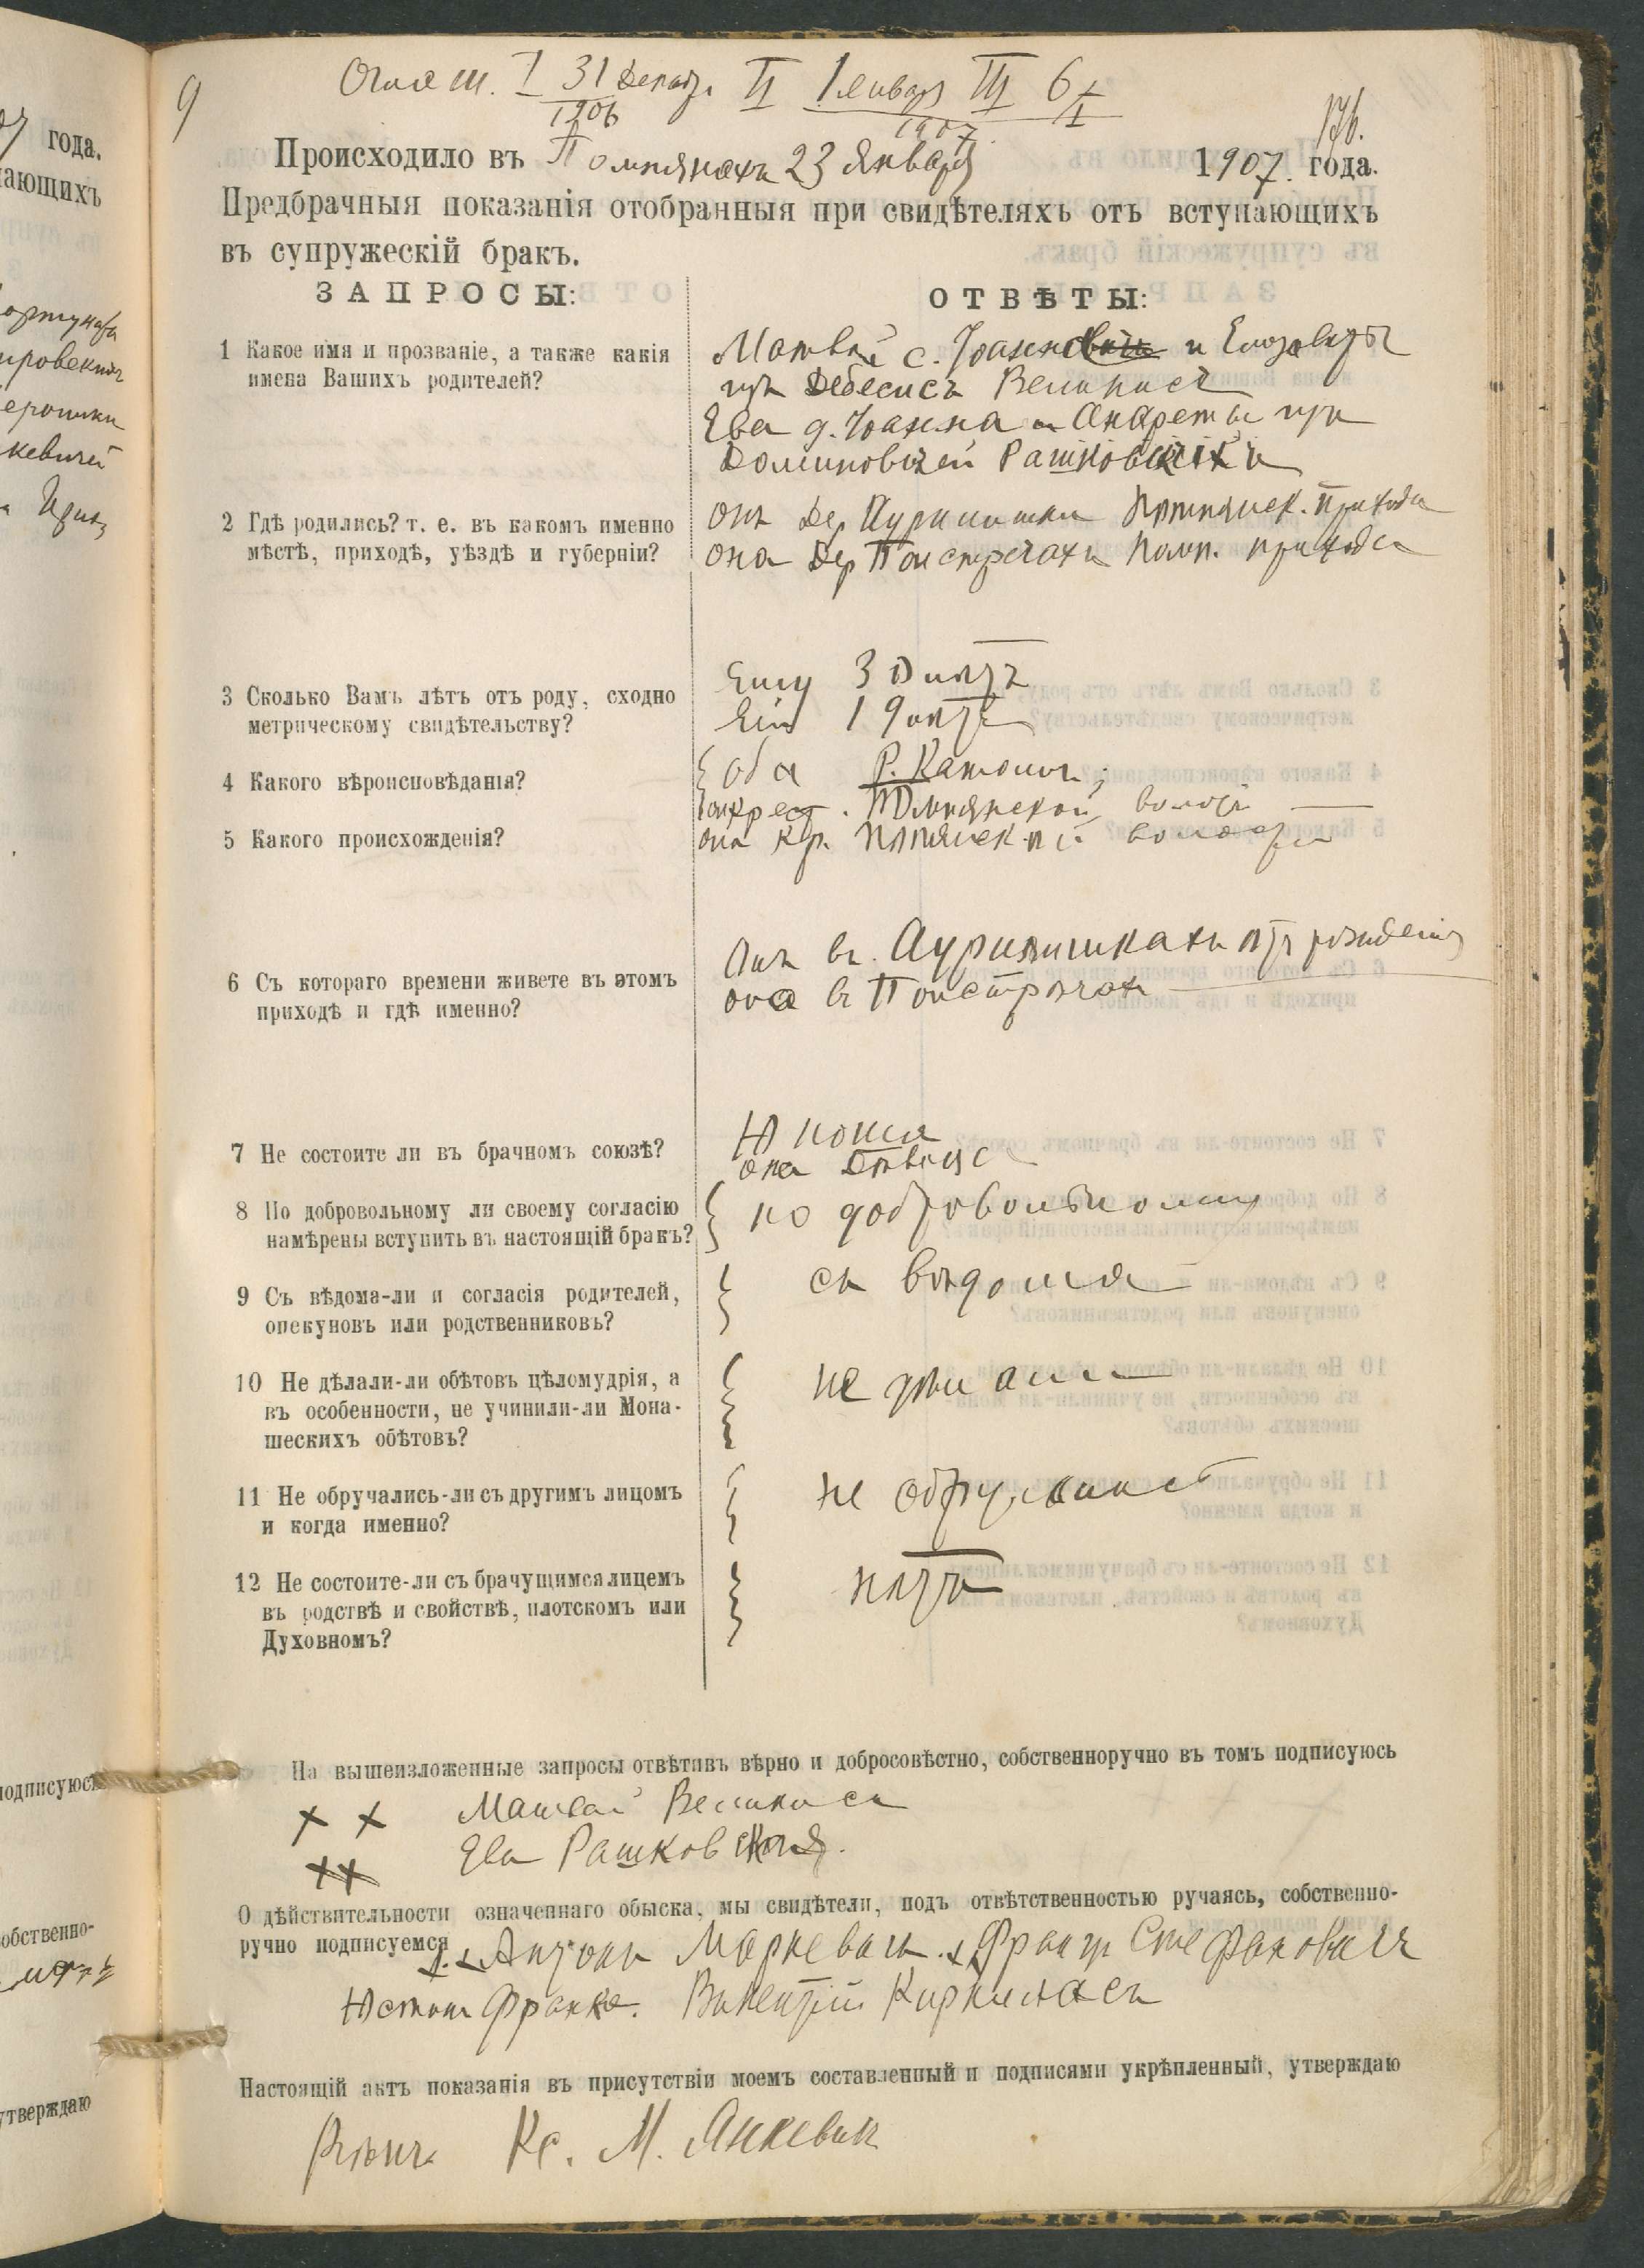 07 года.
ающихъ
кевичей
подписуюсь
собственно-
утверждаю
9
Оглаш. I 31 Декабр. II 1 января III 6/I
1906 1907
176.
Происходило въ Помпянахъ 23 Января 1907. года.
Предбрачныя показанія отобранныя при свидѣтеляхъ отъ вступающихъ
въ супружескій бракъ.
ЗАПРОСЫ: ОТВѢТЫ:
1 Какое имя и прозваніе, а также какія
имена Вашихъ родителей?
Матвѣй с. Іоанна и Елизаветы
изъ Дебесисъ Великисъ
Ева д. Іоанна и Андреты изъ
Домиковичей Рашковскихъ
2 Гдѣ родились? т. е. въ какомъ именно
мѣстѣ, приходѣ, уѣздѣ и губерніи?
онъ Дер. Помпянск. прихода
она Дер. Поистречахъ Помп. прихода
3 Сколько Вамъ лѣтъ отъ роду, сходно
метрическому свидѣтельству?
Ему 30 лѣтъ
Ей 19 лѣтъ
4 Какого вѣроисповѣданія?
оба Р. Католич.;
5 Какого происхожденія?
онъ крест. Помпянской волости
она кр. Помпянск-ой волости
6 Съ котораго времени живете въ этомъ
приходѣ и гдѣ именно?
Онъ въ отъ рожденія
она въ Поистречахъ
7 Не состоите ли въ брачномъ союзѣ?
Юноша
она Дѣвица
8 По добровольному ли своему согласію
намѣрены вступить въ настоящій бракъ?
по добровольному
9 Съ вѣдома-ли и согласія родителей,
опекуновъ или родственниковъ?
съ вѣдома
10 Не дѣлали-ли обѣтовъ цѣломудрія, а
въ особенности, не учинили-ли Мона-
шескихъ обѣтовъ?
не дѣлали
11 Не обручались-ли съ другимъ лицомъ
и когда именно?
не обручались
12 Не состоите-ли съ брачущимся лицемъ
въ родствѣ и свойствѣ, плотскомъ или
Духовномъ?
нѣтъ
На вышеизложенные запросы отвѣтивъ вѣрно и добросовѣстно, собственноручно въ томъ подписуюсь
× × Матвѣй Великисъ
×× Ева Рашковская.
О дѣйствительности означеннаго обыска, мы свидѣтели, подъ отвѣтственностью ручаясь, собственно-
ручно подписуемся Антонъ Маркевичъ. Францъ Стефановичъ
Юстинъ Франко. Викентій Киркиласъ
Настоящій актъ показанія въ присутствіи моемъ составленный и подписями укрѣпленный, утверждаю
Кс. М. Янкевичъ